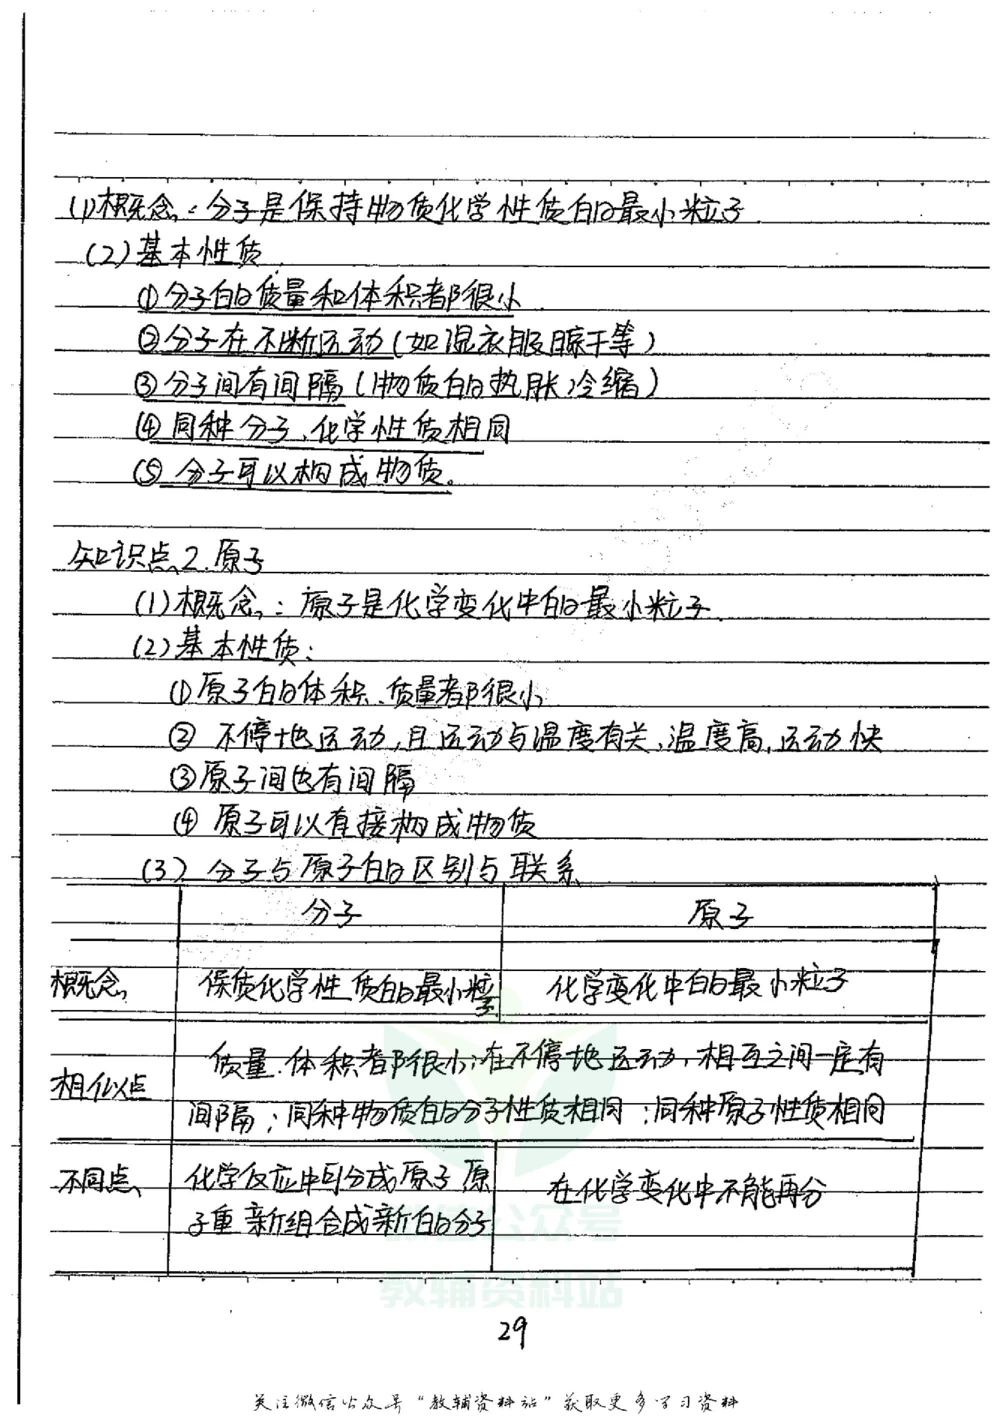 (1)概念：分子是保持物质化学性质的最小粒子.
(2)基本性质:
①分子的质量和体积都很小
②分子在不断运动(如湿衣服晾干等)
③分子间有间隔(物质的热胀冷缩)
④同种分子、化学性质相同
⑤分子可以构成物质。
知识点2.原子
(1)概念：原子是化学变化中的最小粒子.
(2)基本性质:
①原子的体积、质量都很小
② 不停地运动,且运动与温度有关,温度高,运动快
③原子间也有间隔
④ 原子可以直接构成物质
(3) 分子与原子的区别与联系
分子 原子
概念 保质化学性质的最小粒子 化学变化中的最小粒子
质量.体积都很小;在不停地运动,相互之间一定有
相似点
间隔;同种物质的分子性质相同;同种原子性质相同
不同点 化学反应中可分成原子 原 在化学变化中不能再分
子重新组合成新的分子
教辅资料站
29
关注微信公众号“教辅资料站”获取更多学习资料